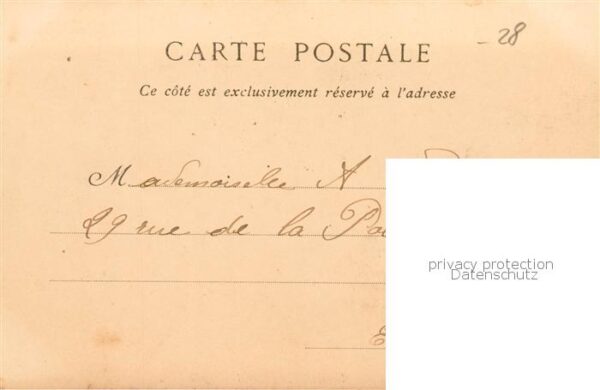 - 28
CARTE POSTALE
Ce côté est exclusivement réservé à l'adresse
Mademoiselle A
29 rue de la
privacy protection
Datenschutz